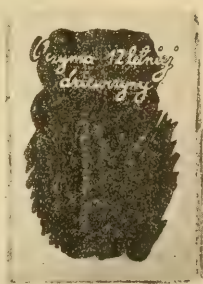 Oczyma 12 letniej
dziewczyny